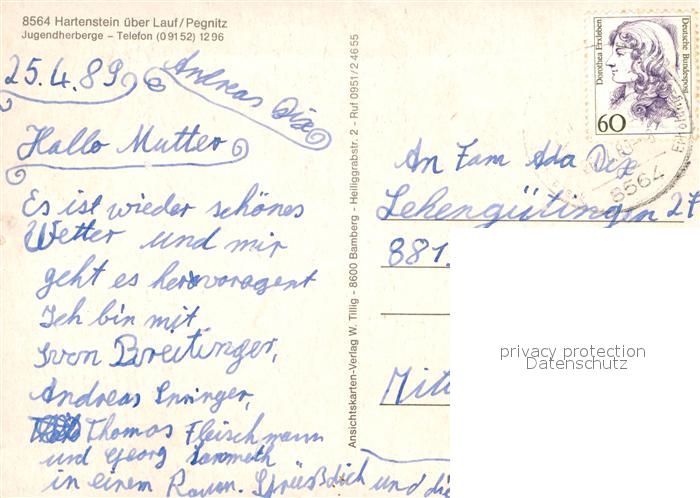 8564 Hartenstein über Lauf/Pegnitz
Jugendherberge – Telefon (09152) 1296
25.4.89
Andreas Dix
Hallo Mutter
Es ist wieder schönes
Wetter und mir
geht es hervoragent
Ich bin mit
Sven Breitinger,
Andreas
Thomas Fleischmann
und Georg
in einem Raum. Grüßdich und die
Ansichtskarten-Verlag W. Tillig - 8600 Bamberg - Heiliggrabstr. 2 - Ruf 0951/24655
Dorothea Erxleben
Deutsche Bundespost
60
8564
An Fam Ada Dix
Lehengütingen 27
881
privacy protection
Datenschutz